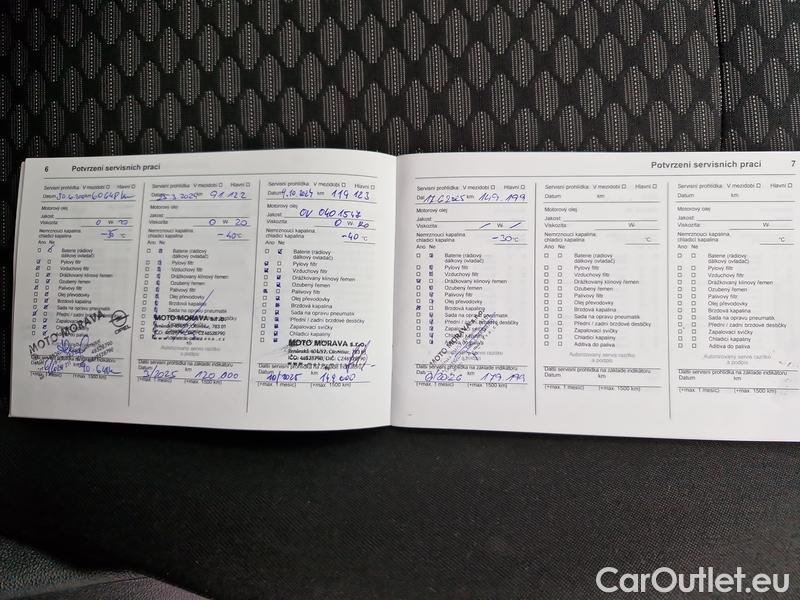 6 Potvrzení servisních prací
Servisní prohlídka: V mezidobí Hlavní
Datum km 60648 km
Motorový olej
Jakost:
Viskozita: 0 W 20
Nemrznoucí kapalina,
chladicí kapalina °C
Ano Ne
Baterie (rádiový
dálkový ovladač)
Pylový filtr
Vzduchový filtr
Drážkovaný klínový řemen
Ozubený řemen
Palivový filtr
Olej převodovky
Brzdová kapalina
Sada na opravu pneumatik
Přední / zadní brzdové destičky
MOTO MORAVA
OPEL
Datum km
(+max. 1 měsíc) (+max. 1500 km)
Servisní prohlídka: V mezidobí Hlavní
Datum km 91 122
Motorový olej
Jakost:
Viskozita: 0 W 20
Nemrznoucí kapalina,
chladicí kapalina -40 °C
Ano Ne
Baterie (rádiový
dálkový ovladač)
Pylový filtr
Vzduchový filtr
Drážkovaný klínový řemen
Ozubený řemen
Palivový filtr
Olej převodovky
Brzdová kapalina
MOTO MORAVA s.r.o.
Další servisní prohlídka na základě indikátoru
Datum km
3/2025 120 000
(+max. 1 měsíc) (+max. 1500 km)
Servisní prohlídka: V mezidobí Hlavní
Datum 9.10.2024 km 119 123
Motorový olej
Jakost: OV 040 1547
Viskozita: 0 W 20
Nemrznoucí kapalina,
chladicí kapalina -40 °C
Ano Ne
Baterie (rádiový
dálkový ovladač)
Pylový filtr
Vzduchový filtr
Drážkovaný klínový řemen
Ozubený řemen
Palivový filtr
Olej převodovky
Brzdová kapalina
Sada na opravu pneumatik
Přední / zadní brzdové destičky
Zapalovací svíčky
MOTO MORAVA s.r.o.
Další servisní prohlídka na základě indikátoru
Datum km
10/2025 149 000
(+max. 1 měsíc) (+max. 1500 km)
Potvrzení servisních prací 7
Servisní prohlídka: V mezidobí Hlavní
km 149 199
Motorový olej
Jakost:
Viskozita: W-
Nemrznoucí kapalina,
chladicí kapalina -30 °C
Ano Ne
Baterie (rádiový
dálkový ovladač)
Pylový filtr
Vzduchový filtr
Drážkovaný klínový řemen
Ozubený řemen
Palivový filtr
Olej převodovky
Brzdová kapalina
Sada na opravu pneumatik
Přední / zadní brzdové destičky
Zapalovací svíčky
Aditiva do paliva
MOTO MORAVA
Další servisní prohlídka na základě indikátoru
Datum km
179 199
(+max. 1 měsíc) (+max. 1500 km)
Servisní prohlídka: V mezidobí Hlavní
Datum km
Motorový olej
Jakost:
Viskozita: W-
Nemrznoucí kapalina,
chladicí kapalina °C
Ano Ne
Baterie (rádiový
dálkový ovladač)
Pylový filtr
Vzduchový filtr
Drážkovaný klínový řemen
Ozubený řemen
Palivový filtr
Olej převodovky
Brzdová kapalina
Sada na opravu pneumatik
Přední / zadní brzdové destičky
Zapalovací svíčky
Aditiva do paliva
Autorizovaný servis razítko
a podpis
Další servisní prohlídka na základě indikátoru
Datum km
(+max. 1 měsíc) (+max. 1500 km)
Servisní prohlídka: V mezidobí Hlavní
Datum km
Motorový olej
Jakost:
Viskozita: W-
Nemrznoucí kapalina,
chladicí kapalina °C
Ano Ne
Baterie (rádiový
dálkový ovladač)
Pylový filtr
Vzduchový filtr
Drážkovaný klínový řemen
Ozubený řemen
Palivový filtr
Olej převodovky
Brzdová kapalina
Sada na opravu pneumatik
Přední / zadní brzdové destičky
Zapalovací svíčky
Aditiva do paliva
Autorizovaný servis razítko
a podpis
Další servisní prohlídka na základě indikátoru
Datum km
(+max. 1 měsíc) (+max. 1500 km)
CarOutlet.eu